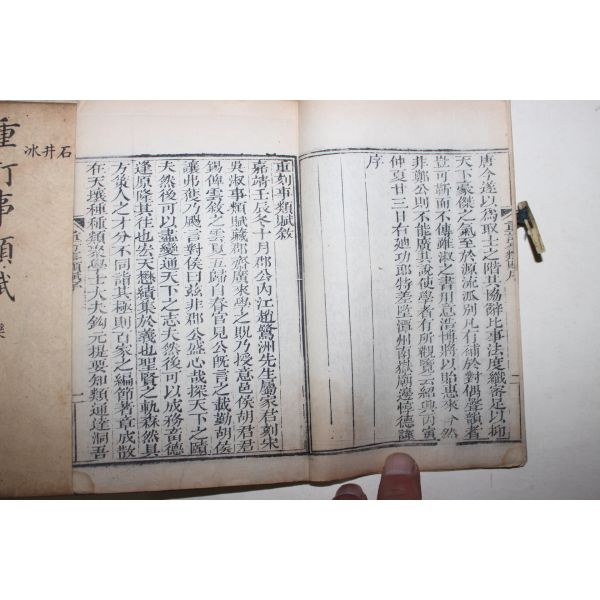 唐今遂以爲取士之階其協辭比事法度纖密足以抑
天下豪傑之氣至於源流派別凡有補於對偶聲韻者
豈可斬而不傳雖淑之書用意浩博將以貽惠來今然
非鄭公則不能廣其說使學者有所觀覽云紹興丙寅
仲夏廿三日右廸功郎特差監潭州南嶽廟邊惇德謹
序
重刻事類賦敘
嘉靖壬辰冬十月郡公內江趙鷺洲先生屬家君刻宋
吳淑事類賦藏郡齋廣來學之既乃授意邑侯胡君君
錫俾雲敘之雲夏五歸自春官見公既言之載勤胡侯
讓弗獲乃颺言對侯曰玆非郡公盛心哉探天下之賾
夫然後可以盡變通天下之志夫然後可以成務畜德
逢原隆其往也宏天懋績集於義也聖賢之軌森然具
方策人之才分不同詣其極則百家之編節著章成散
在天壤種種類朶學士大夫鈎元提要知類通達洞吾
重訂事類賦
石井氷